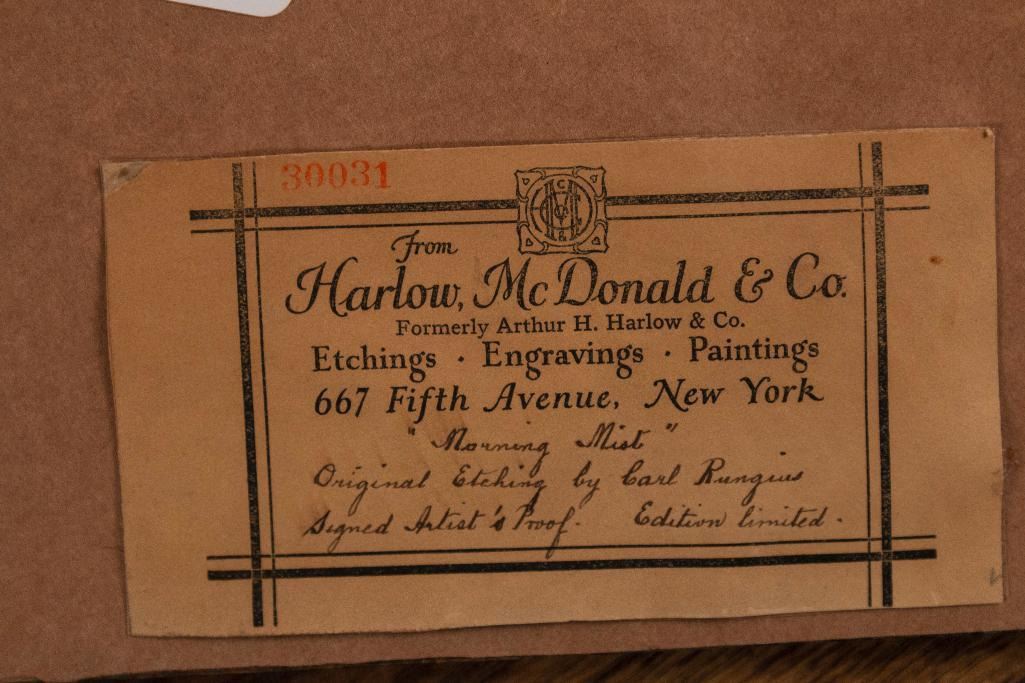 30031
From
Harlow, McDonald & Co.
Formerly Arthur H. Harlow & Co.
Etchings · Engravings · Paintings
667 Fifth Avenue, New York
"Morning Mist"
Original Etching by Carl Rungius
Signed Artist's Proof. Edition limited.